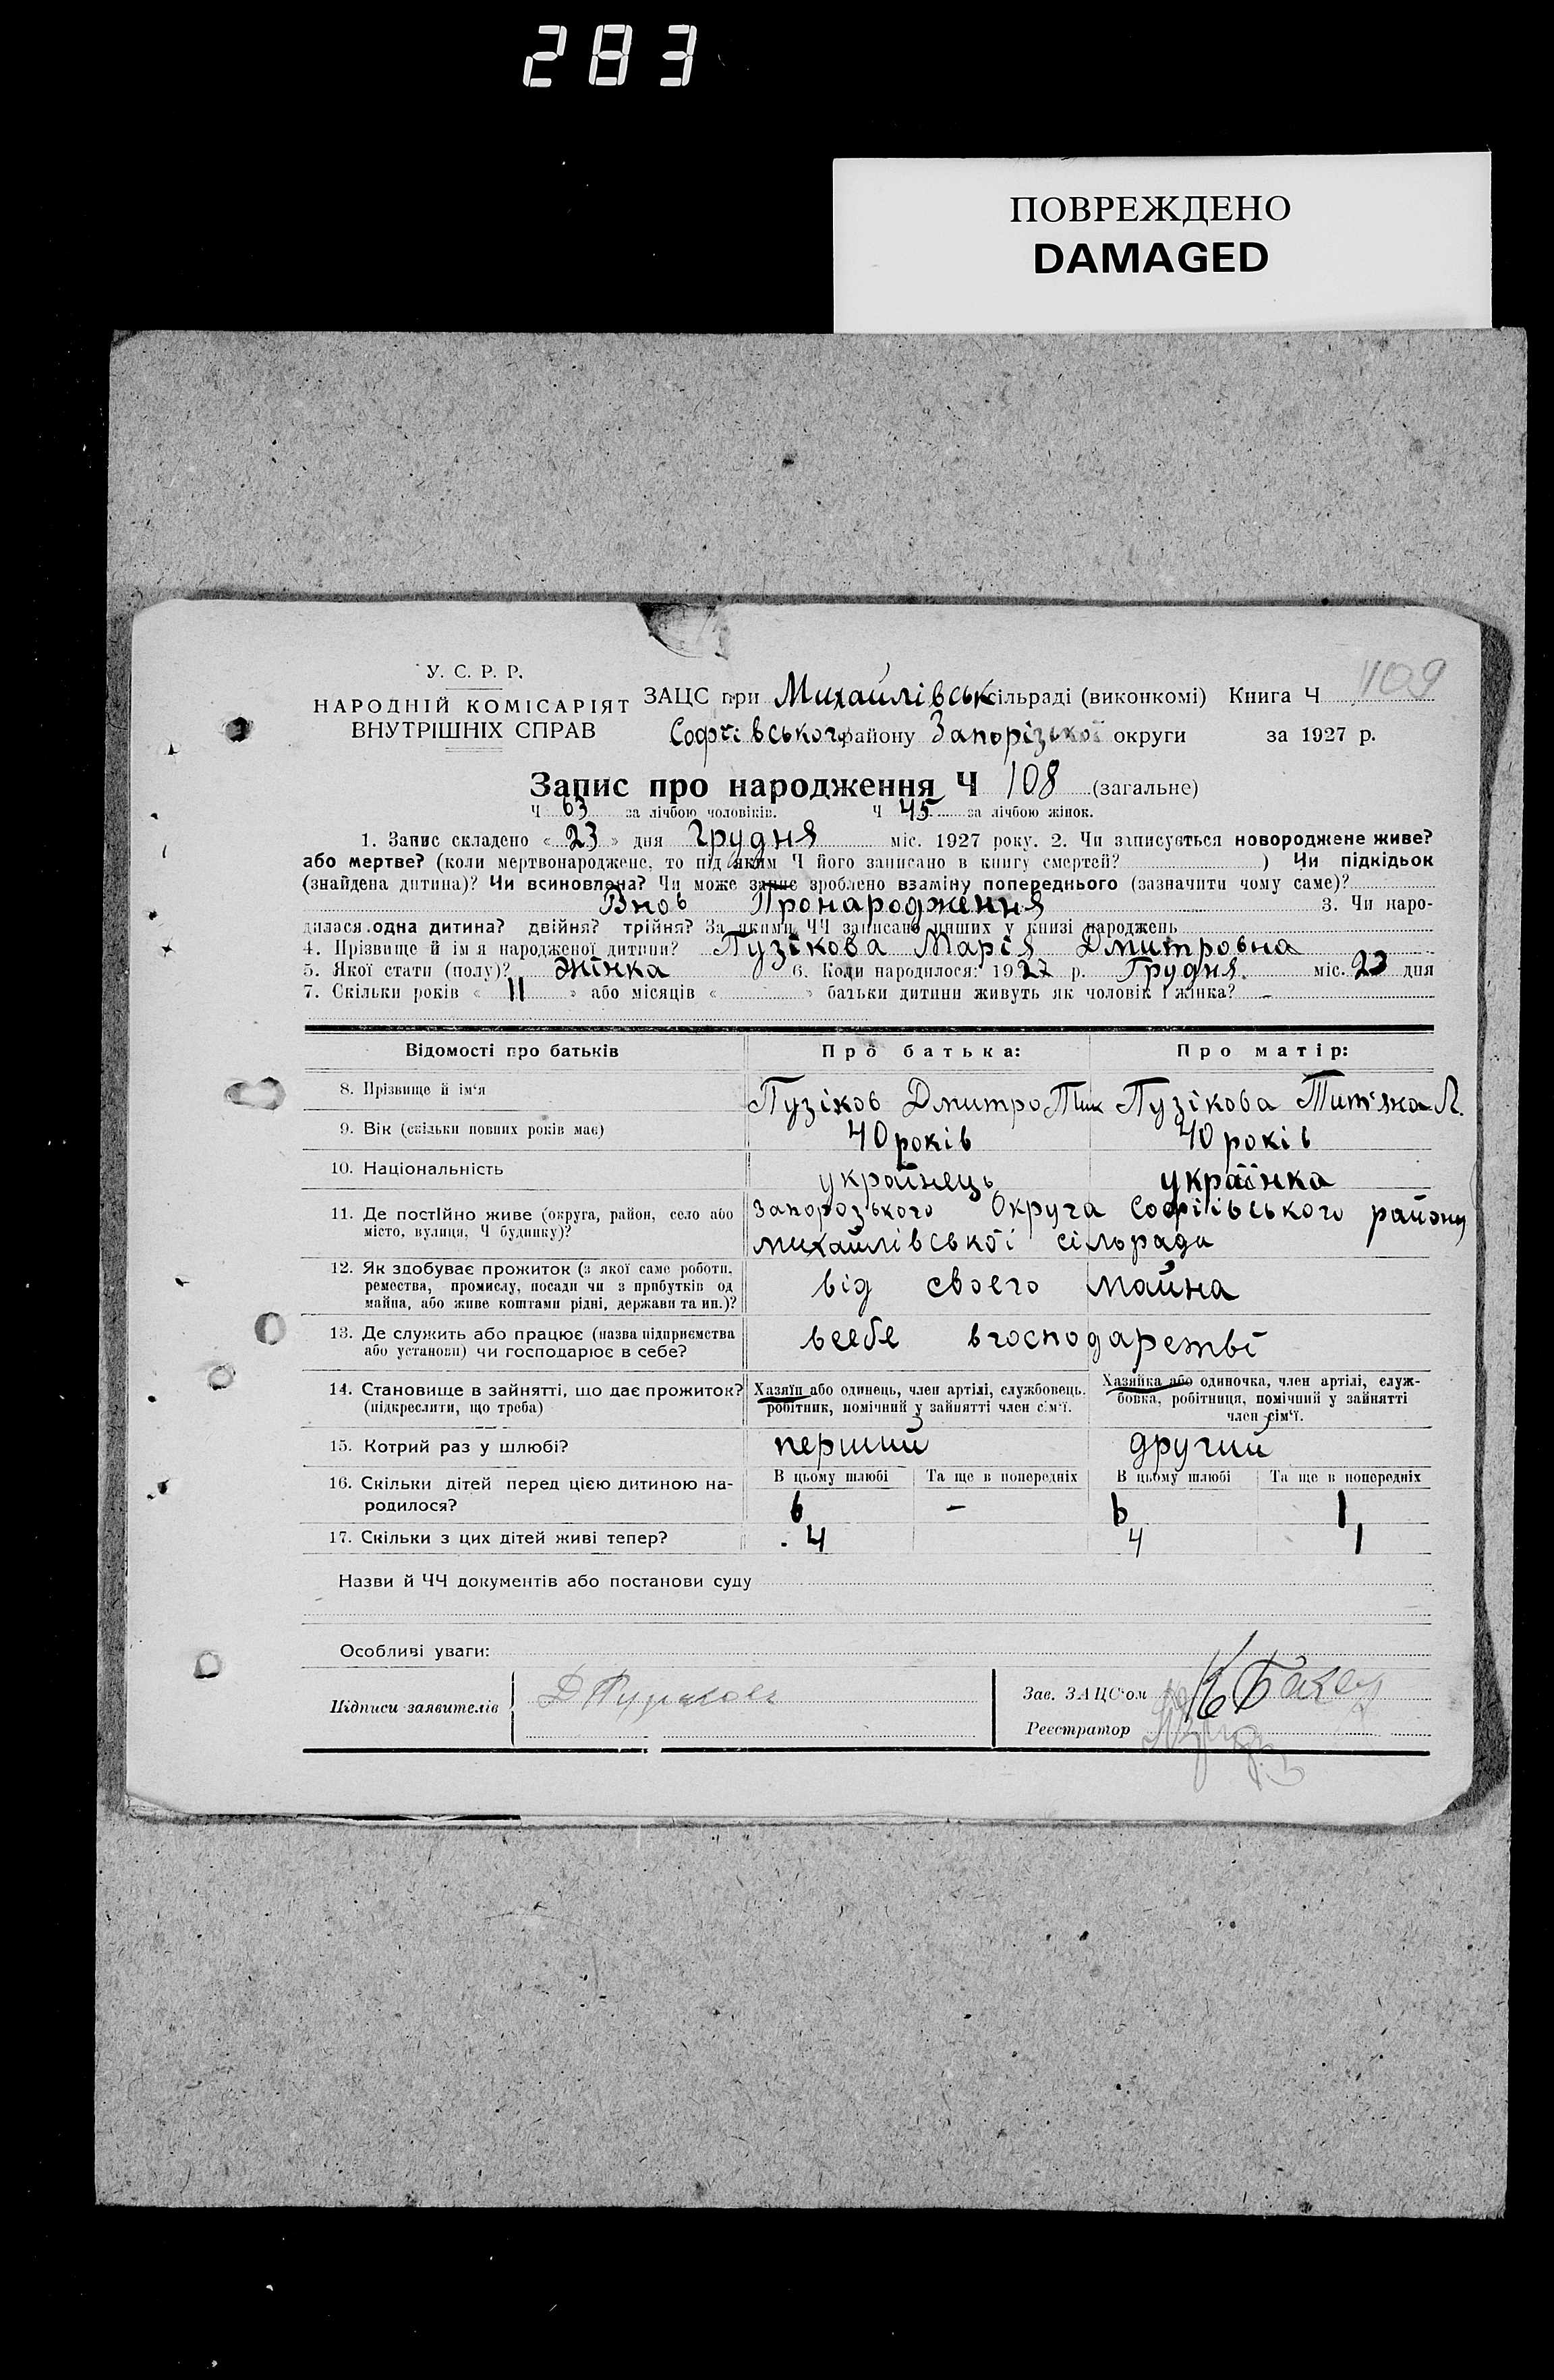 283
ПОВРЕЖДЕНО
DAMAGED
109
У. С. Р. Р.
НАРОДНІЙ КОМІСАРІЯТ
ВНУТРІШНІХ СПРАВ
ЗАЦС при Михайлівськ сільраді (виконкомі) Книга Ч
Софіївського району Запорізької округи за 1927 р.
Запис про народження Ч 108 (загальне)
Ч 63 за лічбою чоловіків. Ч 45 за лічбою жінок.
1. Запис складено « 23 » дня Грудня міс. 1927 року. 2. Чи записується новороджене живе?
або мертве? (коли мертвонароджене, то під яким Ч його записано в книгу смертей? ) Чи підкідьок
(знайдена дитина)? Чи всиновлена? Чи може запис зроблено взаміну попереднього (зазначити чому саме)?
Внов Пронародження 3. Чи наро-
дилася одна дитина? двійня? трійня? За якими ЧЧ записано инших у книзі народжень
4. Прізвище й ім'я народженої дитини? Пузікова Марія Дмитровна
5. Якої стати (полу)? Жінка 6. Коли народилося: 1927 р. Грудня міс. 23 дня
7. Скільки років « 11 » або місяців « » батьки дитини живуть як чоловік і жінка? –
Відомості про батьків Про батька: Про матір:
8. Прізвище й ім'я Пузіков Дмитро Пузікова Тит'яна Л.
9. Вік (скільки повних років має) 40 років 40 років
10. Національність українець українка
11. Де постійно живе (округа, район, село або місто, вулиця, Ч будинку)? Запорозького Округа Софіівського району
михайлівської сільради
12. Як здобуває прожиток (з якої саме роботи,
ремества, промислу, посади чи з прибутків од
майна, або живе коштами рідні, держави та ин.)? від своего майна
13. Де служить або працює (назва підприємства
або установи) чи господарює в себе? в себе в господарстві
14. Становище в зайнятті, що дає прожиток?
(підкреслити, що треба)
Хазяїн або одинець, член артілі, службовець,
робітник, помічний у зайнятті член сім'ї.
Хазяйка або одиночка, член артілі, служ-
бовка, робітниця, помічний у зайнятті
член сім'ї.
15. Котрий раз у шлюбі? перший другий
16. Скільки дітей перед цією дитиною на-
родилося?
В цьому шлюбі Та ще в попередніх В цьому шлюбі Та ще в попередніх
6 – 6 1
17. Скільки з цих дітей живі тепер? 4 4 1
Назви й ЧЧ документів або постанови суду
Особливі уваги:
Підписи заявителів
Зав. ЗАЦС'ом
Реєстратор